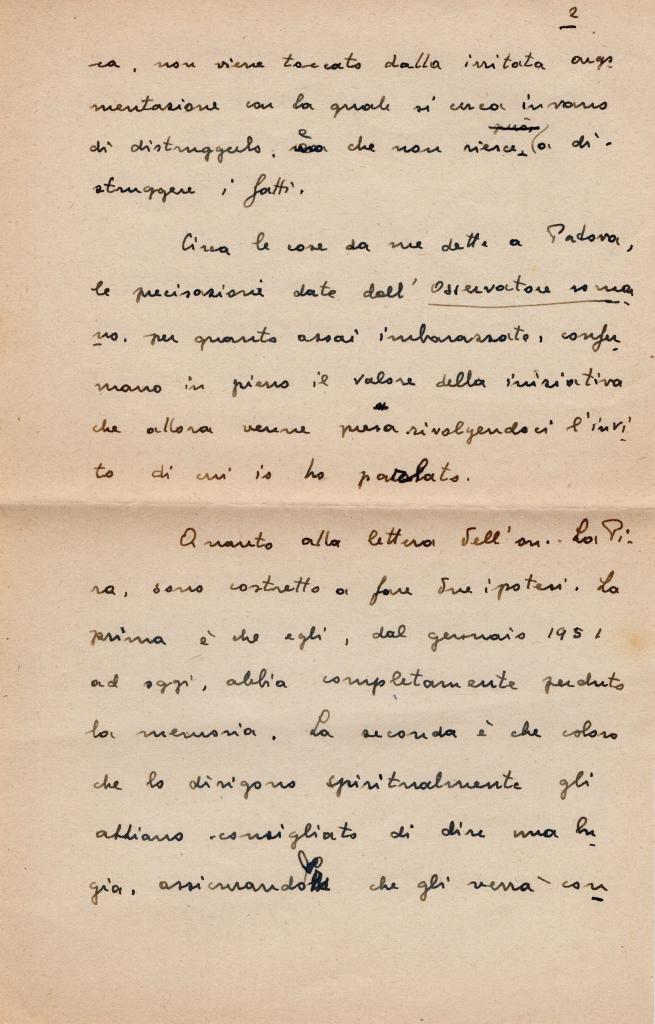 2
ca, non viene toccato dalla irritata argo
mentazione con la quale si cerca invano
di distruggerlo, è che non riesce però a di-
struggere i fatti.
Circa le cose da me dette a Padova,
le precisazioni date dall'Osservatore roma
no, per quanto assai imbarazzate, confer
mano in pieno il valore della iniziativa
che allora venne presa rivolgendoci l'invi
to di cui io ho parlato.
Quanto alla lettera dell'on. La Pi-
ra, sono costretto a fare due ipotesi. La
prima è che egli, dal gennaio 1951
ad oggi, abbia completamente perduto
la memoria. La seconda è che coloro
che lo dirigono spiritualmente gli
abbiano consigliato di dire una bu
gia, assicurando che gli verrà con